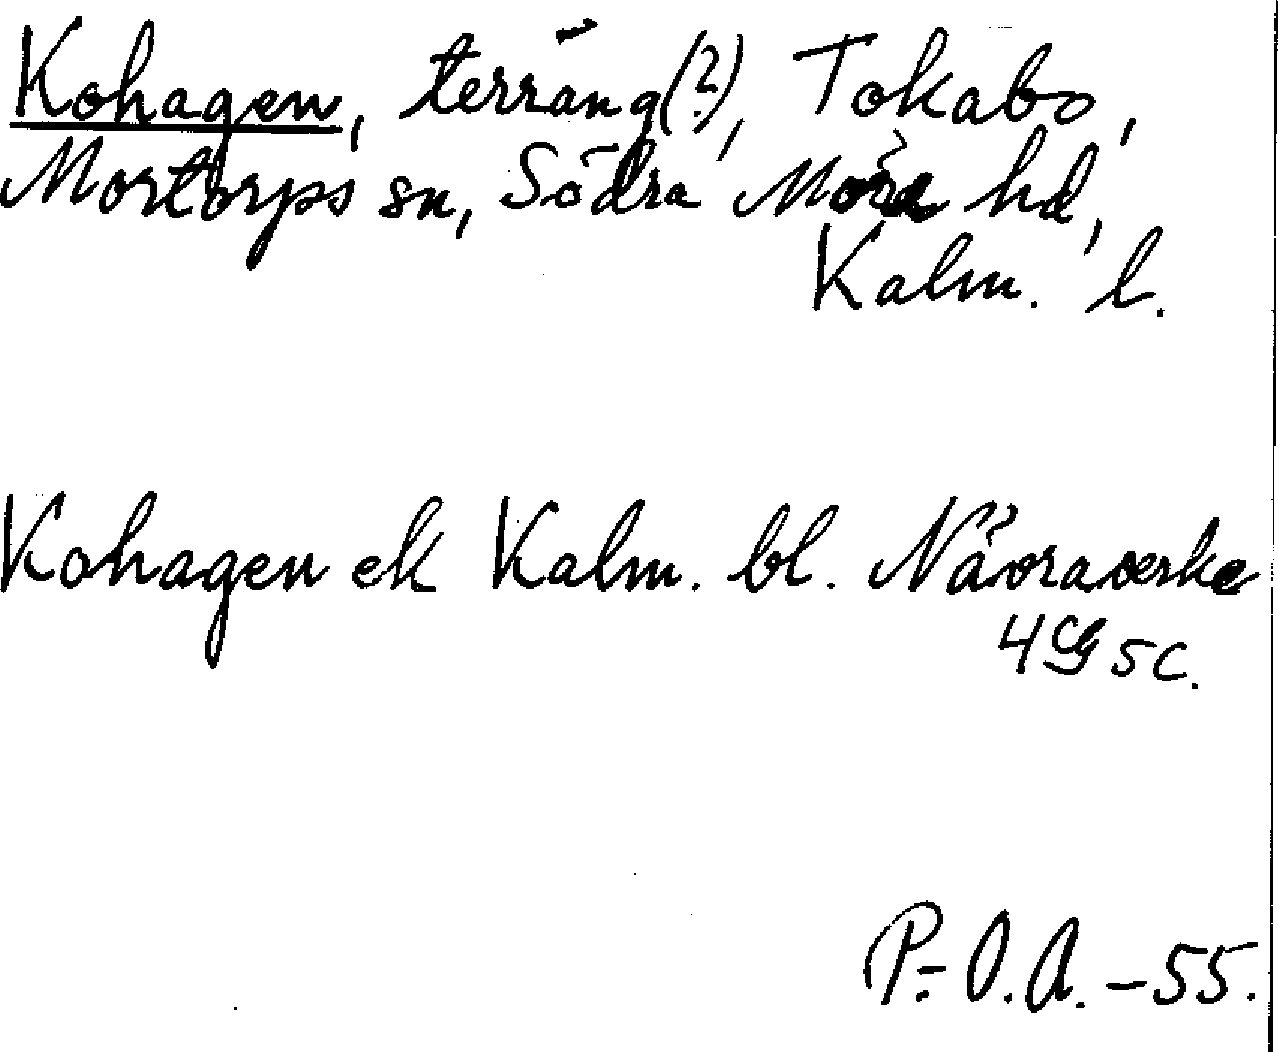 Kohagen, terräng(?), Tokabo,
Mortorps sn, Södra Möre hd,
Kalm. l.
Kohagen ek Kalm. bl. Nävraverke
4G 5c.
P.-O.A. -55.